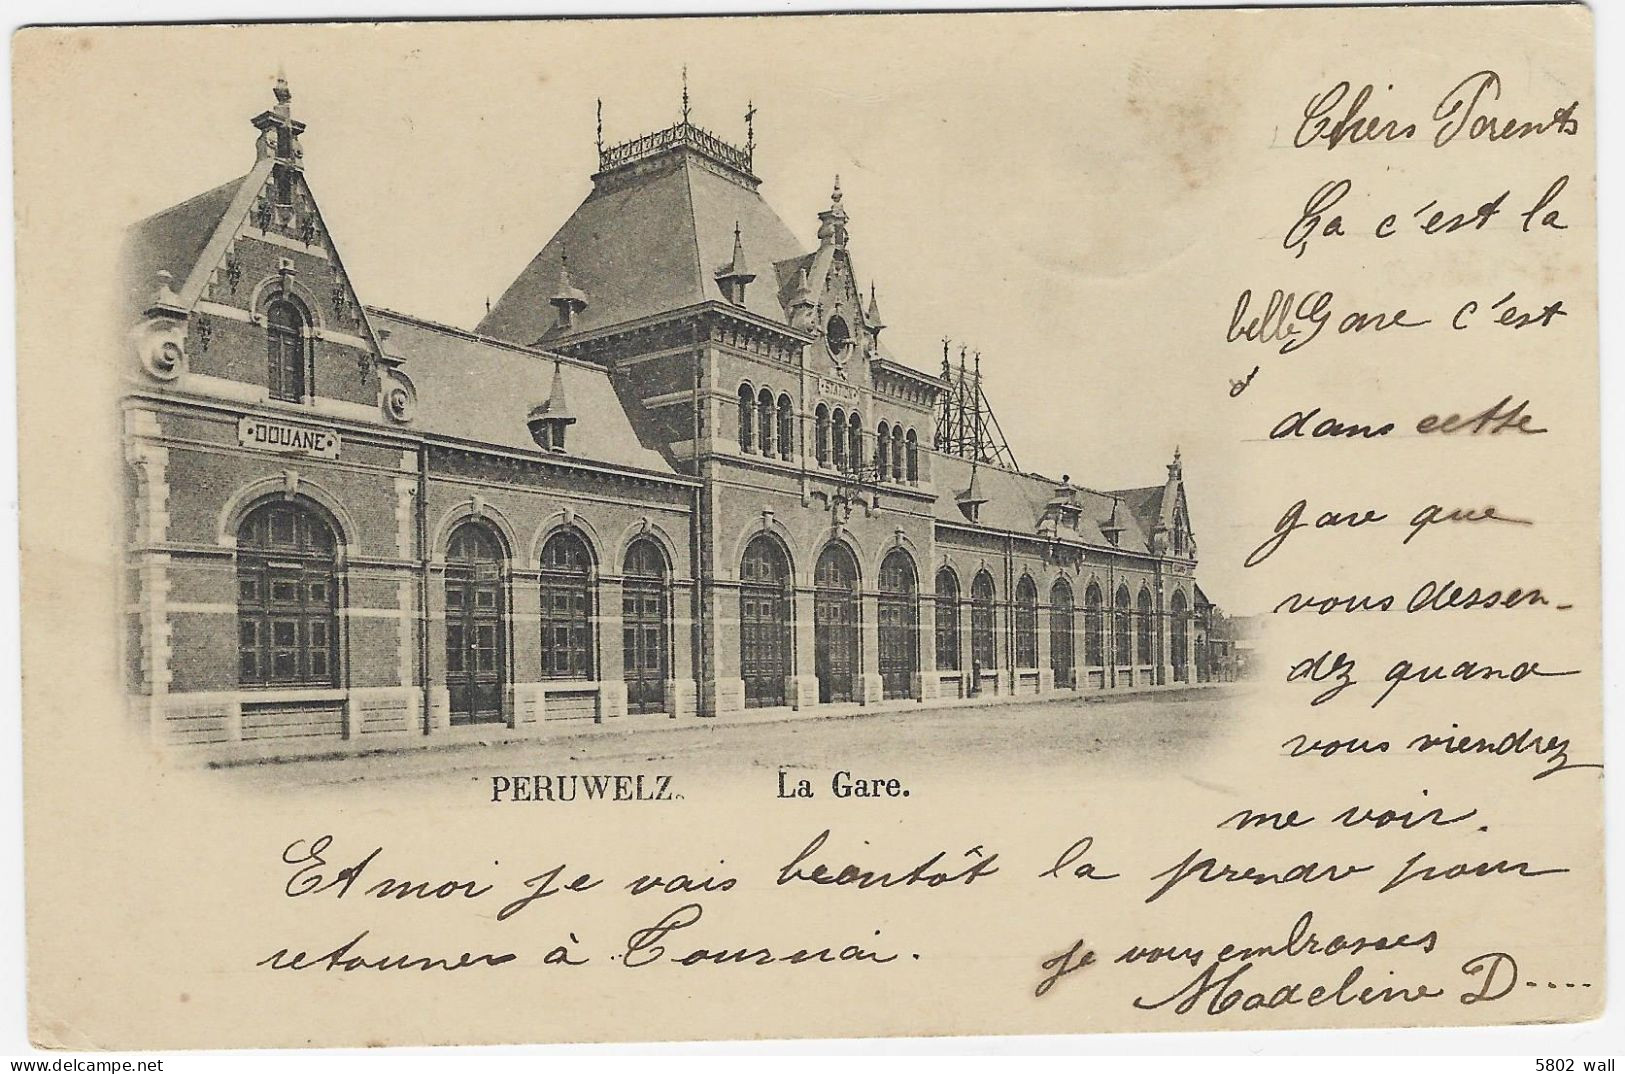 DOUANE
STATION
PERUWELZ. La Gare.
Chers Parents
Ça c'est la
belle Gare c'est
dans cette
gare que
vous dessen-
dez quand
vous viendrez
me voir.
Et moi je vais bientôt la prendre pour
retourner à Tournai.
je vous embrasses
Madeleine D.....
5802 wall